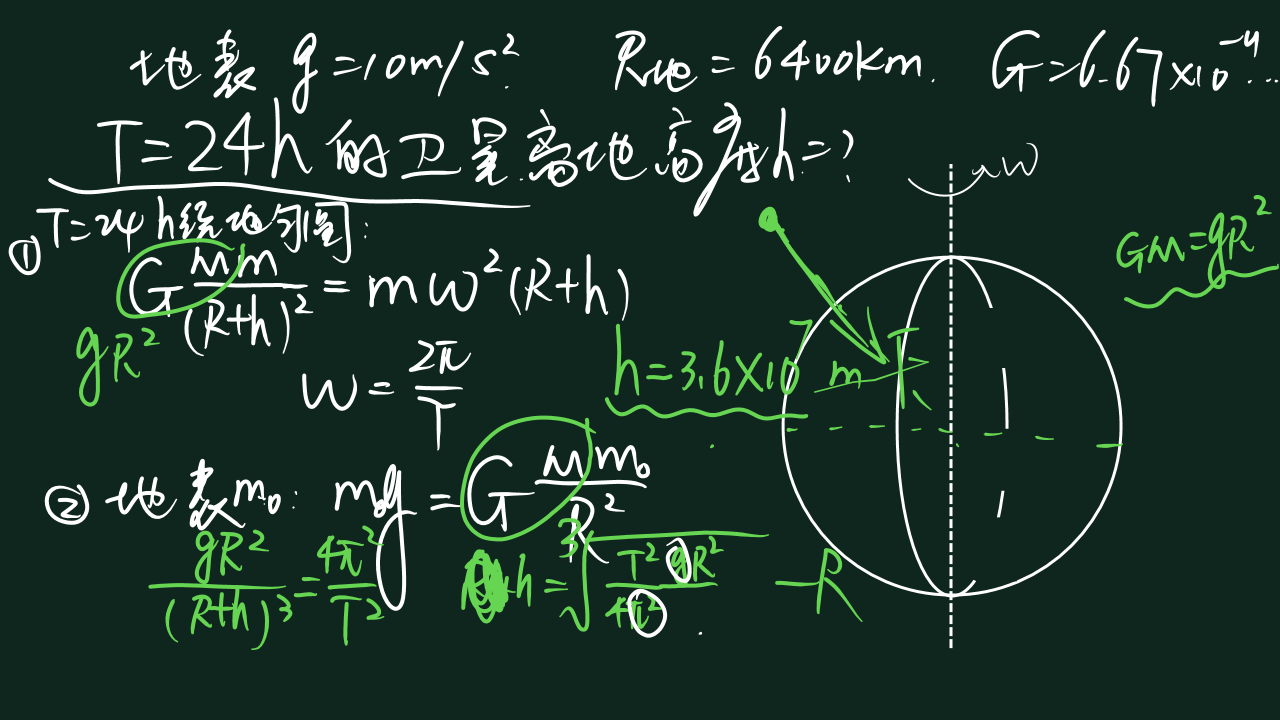 地表 g=10m/s² R地=6400km. G=6.67×10⁻¹¹...
T=24h的卫星离地高度h=?
① T=24h绕地匀圆:
G Mm/(R+h)² = mω²(R+h)
gR²
ω = 2π/T
h=3.6×10⁷ m
② 地表m₀: m₀g = G Mm₀/R²
gR²/(R+h)³ = 4π²/T²
h = ³√(T²gR²/4π²) - R
ω
GM=gR²
R